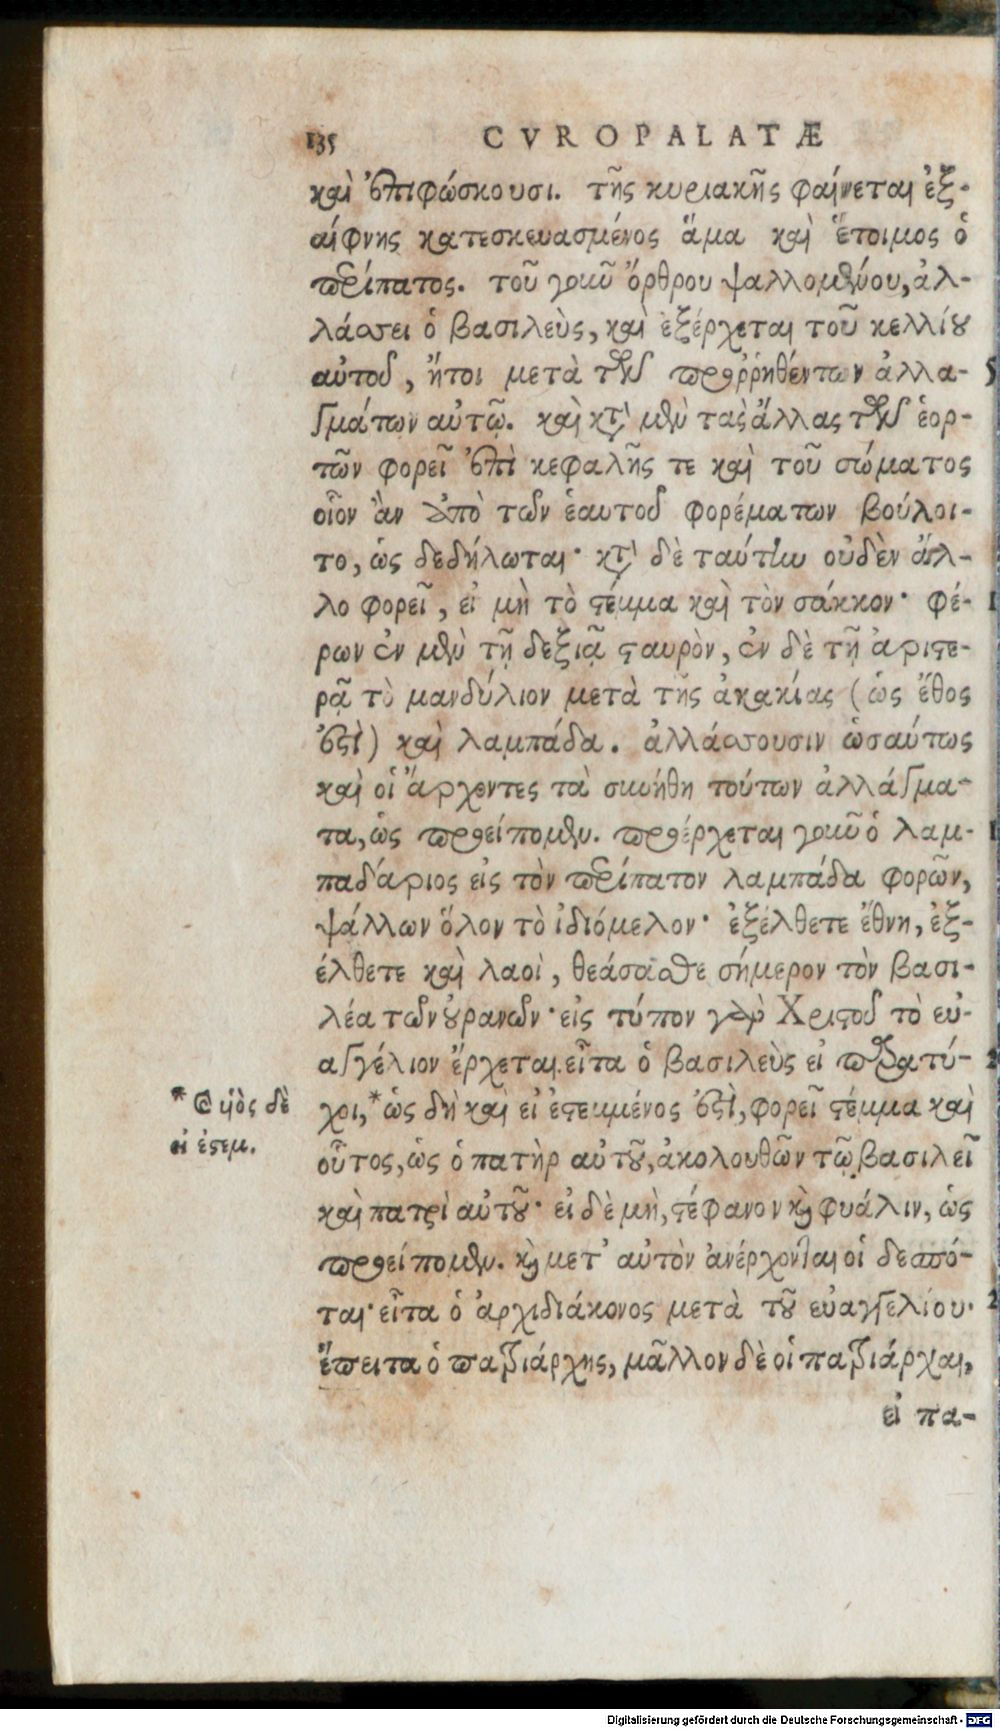 135 CVROPALATÆ
καὶ ἐπιφώσκουσι. τῆς κυριακῆς φαίνεται ἐξ-
αίφνης κατεσκευασμένος ἅμα καὶ ἕτοιμος ὁ
πρίπατος. τοῦ γοῦν ὄρθρου ψαλλομένου, ἀλ-
λάσσει ὁ βασιλεὺς, καὶ ἐξέρχεται τοῦ κελλίου
αὐτοῦ, ἤτοι μετὰ τῶν προῤῥηθέντων ἀλλα-
γμάτων αὐτῷ. καὶ κατὰ μὲν τὰς ἄλλας τῶν ἑορ-
τῶν φορεῖ ἐπὶ κεφαλῆς τε καὶ τοῦ σώματος
οἷον ἂν ἀπὸ τῶν ἑαυτοῦ φορέματων βούλοι-
το, ὡς δεδήλωται· κατὰ δὲ ταύτην οὐδὲν ἄλ-
λο φορεῖ, εἰ μὴ τὸ στέμμα καὶ τὸν σάκκον· φέ-
ρων ἐν μὲν τῇ δεξιᾷ σταυρὸν, ἐν δὲ τῇ ἀριστε-
ρᾷ τὸ μανδύλιον μετὰ τῆς ἀκακίας (ὡς ἔθος
ἐστὶ) καὶ λαμπάδα. ἀλλάσσουσιν ὡσαύτως
καὶ οἱ ἄρχοντες τὰ συνήθη τούτων ἀλλάγμα-
τα, ὡς προείπομεν. προέρχεται γοῦν ὁ λαμ-
παδάριος εἰς τὸν πρίπατον λαμπάδα φορῶν,
ψάλλων ὅλον τὸ ἰδιόμελον· ἐξέλθετε ἔθνη, ἐξ-
έλθετε καὶ λαοὶ, θεάσασθε σήμερον τὸν βασι-
λέα τῶν οὐρανῶν· εἰς τύπον γὰρ Χριστοῦ τὸ εὐ-
αγγέλιον ἔρχεται. εἶτα ὁ βασιλεὺς εἰ παρατύ-
χοι,* ὡς δὴ καὶ εἰ ἐστεμμένος ἐστὶ, φορεῖ στέμμα καὶ
οὗτος, ὡς ὁ πατὴρ αὐτοῦ, ἀκολουθῶν τῷ βασιλεῖ
καὶ πατρὶ αὐτοῦ· εἰ δὲ μὴ, στέφανον καὶ φυάλιν, ὡς
προείπομεν. καὶ μετ' αὐτὸν ἀνέρχονται οἱ δεσπό-
ται· εἶτα ὁ ἀρχιδιάκονος μετὰ τοῦ εὐαγγελίου·
ἔπειτα ὁ πατριάρχης, μᾶλλον δὲ οἱ πατριάρχαι,
εἰ πα-
* ὁ ὑὸς δὲ
εἰ ἐστεμ.
5
Digitalisierung gefördert durch die Deutsche Forschungsgemeinschaft - DFG